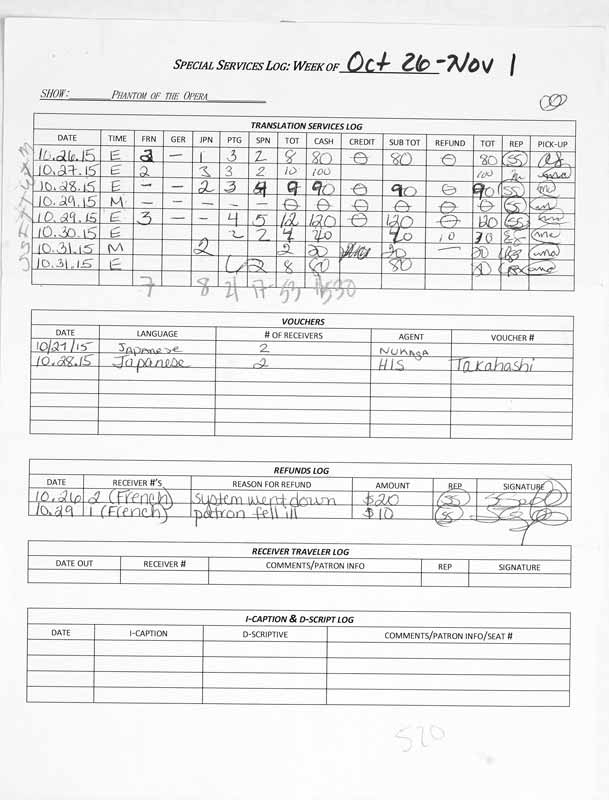 SPECIAL SERVICES LOG: WEEK OF Oct 26-Nov 1
SHOW: PHANTOM OF THE OPERA
TRANSLATION SERVICES LOG
DATE TIME FRN GER JPN PTG SPN TOT CASH CREDIT SUB TOT REFUND TOT REP PICK-UP
10.26.15 E 3 — 1 3 2 8 80 0 80 0 80 SS
10.27.15 E 2 3 3 2 10 100 100
10.28.15 E - - 2 3 4 9 90 0 90 0 90 SS
10.29.15 M - - - - - 0 0 0 0 0 0 SS
10.29.15 E 3 - - 4 5 12 120 0 120 0 120 SS
10.30.15 E 2 2 4 40 40 10
10.31.15 M 2 2 20 20 20
10.31.15 E 6 2 8 80 80 80
7 8 21 17 53 530
VOUCHERS
DATE LANGUAGE # OF RECEIVERS AGENT VOUCHER #
10/27/15 Japanese 2 NUKAGA
10.28.15 Japanese 2 HIS Takahashi
REFUNDS LOG
DATE RECEIVER #'S REASON FOR REFUND AMOUNT REP SIGNATURE
10.26 2 (French) system went down $20 SS
10.29 1 (French) patron fell ill $10 SS
RECEIVER TRAVELER LOG
DATE OUT RECEIVER # COMMENTS/PATRON INFO REP SIGNATURE
I-CAPTION & D-SCRIPT LOG
DATE I-CAPTION D-SCRIPTIVE COMMENTS/PATRON INFO/SEAT #
520